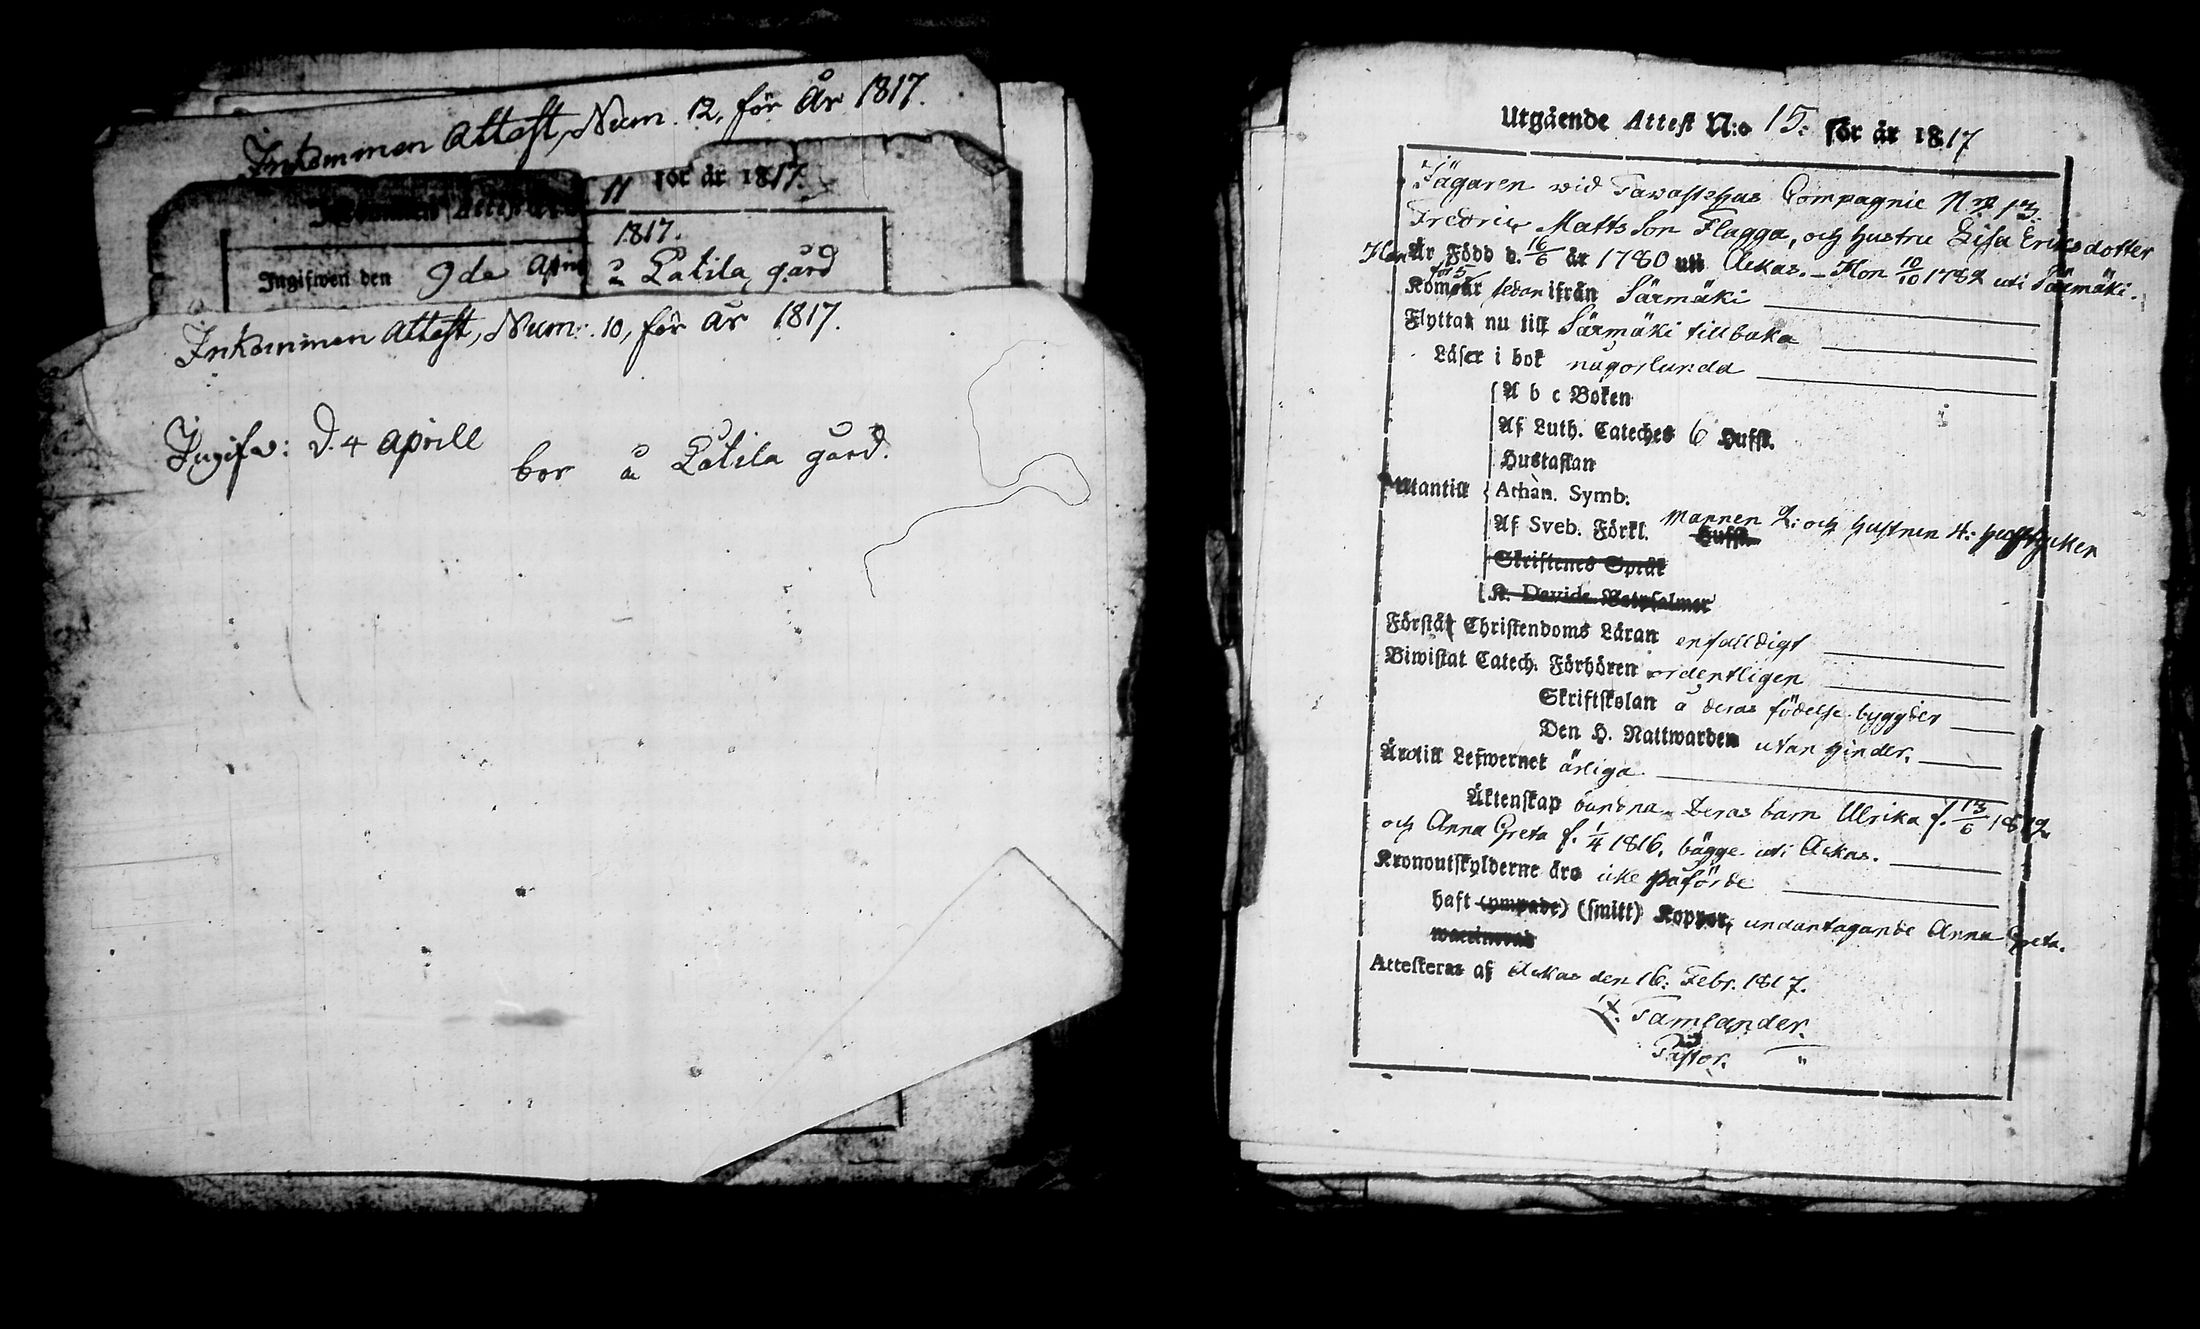 Inkommen Attest, Num. 12, för År 1817.
11 för år 1817.
1817.
Ingifwen den 9de Apri
å Latila gård
Inkommen Attest, Num: 10, för År 1817.
Ingifw: d. 4 Aprill
bor å Latila gård.
Utgående Attest N:o 15: för år 1817
Jägaren wid Tawastehus Compagnie Nro 13.
Fredric Matts Son Flagga, och hustru Lisa Ericsdotter
Han Är Född d. 16/6 år 1780 uti Ackas. - Hon 10/10 1782 uti Särmäki.
Kom för 5 år sedan ifrån Särmäki
Flyttat nu till Särmäki tillbaka
Läser i bok någorlunda
A b c Boken
Af Luth. Cateches 6 Hufst.
Hustaflan
Utantill Athan. Symb.
Af Sveb. Förkl. Mannen 2: och hustrun 4: hufstycken
Hufst.
Skriftenes Språk
K. Davids Botpsalmer
Förstår Christendoms Läran enfalldigt
Biwistat Catech. Förhören ordentligen
Skriftskolan å deras födelse bygder
Den H. Nattwarden utan hinder.
Äro till Lefwernet ärliga
Äktenskap bundna. Deras barn Ulrika f. 13/6 1812
och Anna Greta f. 1/4 1816. bägge uti Ackas.
Kronoutskylderne äro icke påförde
haft (ympade) (smitt) Koppor, undantagande Anna Greta.
waccinerad
Attesteras af Ackas den 16: Febr. 1817.
Tamlander.
Pastor.